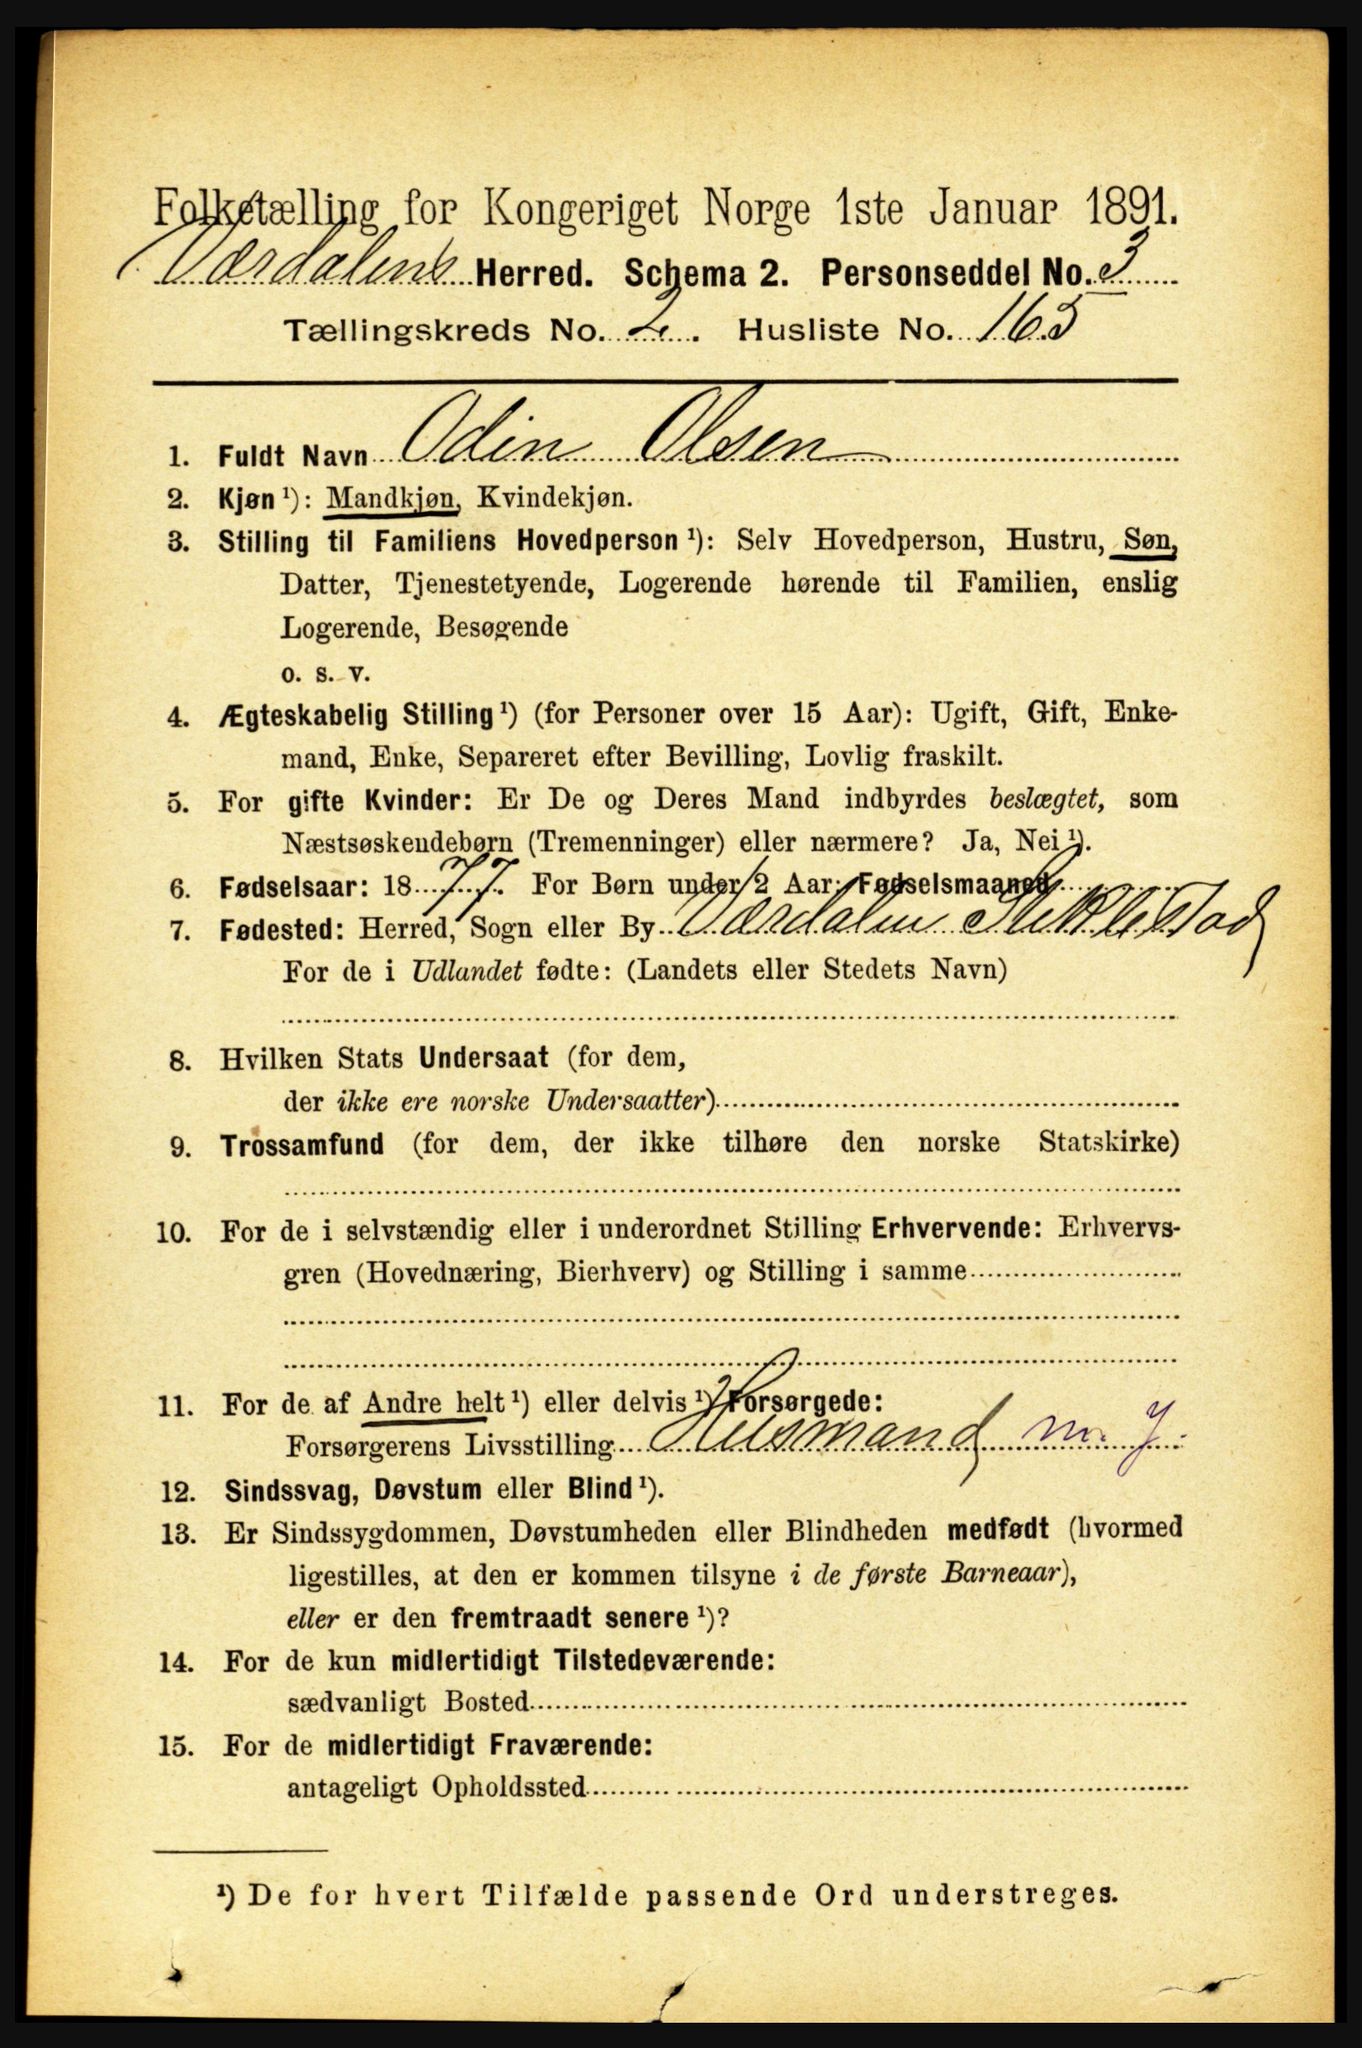 Folketælling for Kongeriget Norge 1ste Januar 1891.
Værdalens Herred. Schema 2. Personseddel No. 3
Tællingskreds No. 2. Husliste No. 165
1. Fuldt Navn Odin Olsen
2. Kjøn ¹): Mandkjøn, Kvindekjøn.
3. Stilling til Familiens Hovedperson ¹): Selv Hovedperson, Hustru, Søn,
Datter, Tjenestetyende, Logerende hørende til Familien, enslig
Logerende, Besøgende
o. s. v.
4. Ægteskabelig Stilling ¹) (for Personer over 15 Aar): Ugift, Gift, Enke-
mand, Enke, Separeret efter Bevilling, Lovlig fraskilt.
5. For gifte Kvinder: Er De og Deres Mand indbyrdes beslægtet, som
Næstsøskendebørn (Tremenninger) eller nærmere? Ja, Nei ¹).
6. Fødselsaar: 1877. For Børn under 2 Aar: Fødselsmaaned
7. Fødested: Herred, Sogn eller By Værdalen Stiklestad
For de i Udlandet fødte: (Landets eller Stedets Navn)
8. Hvilken Stats Undersaat (for dem,
der ikke ere norske Undersaatter)
9. Trossamfund (for dem, der ikke tilhøre den norske Statskirke)
10. For de i selvstændig eller i underordnet Stilling Erhvervende: Erhvervs-
gren (Hovednæring, Bierhverv) og Stilling i samme
11. For de af Andre helt ¹) eller delvis ¹) Forsørgede:
Forsørgerens Livsstilling Husmand m. J.
12. Sindssvag, Døvstum eller Blind ¹).
13. Er Sindssygdommen, Døvstumheden eller Blindheden medfødt (hvormed
ligestilles, at den er kommen tilsyne i de første Barneaar),
eller er den fremtraadt senere ¹)?
14. For de kun midlertidigt Tilstedeværende:
sædvanligt Bosted
15. For de midlertidigt Fraværende:
antageligt Opholdssted
¹) De for hvert Tilfælde passende Ord understreges.